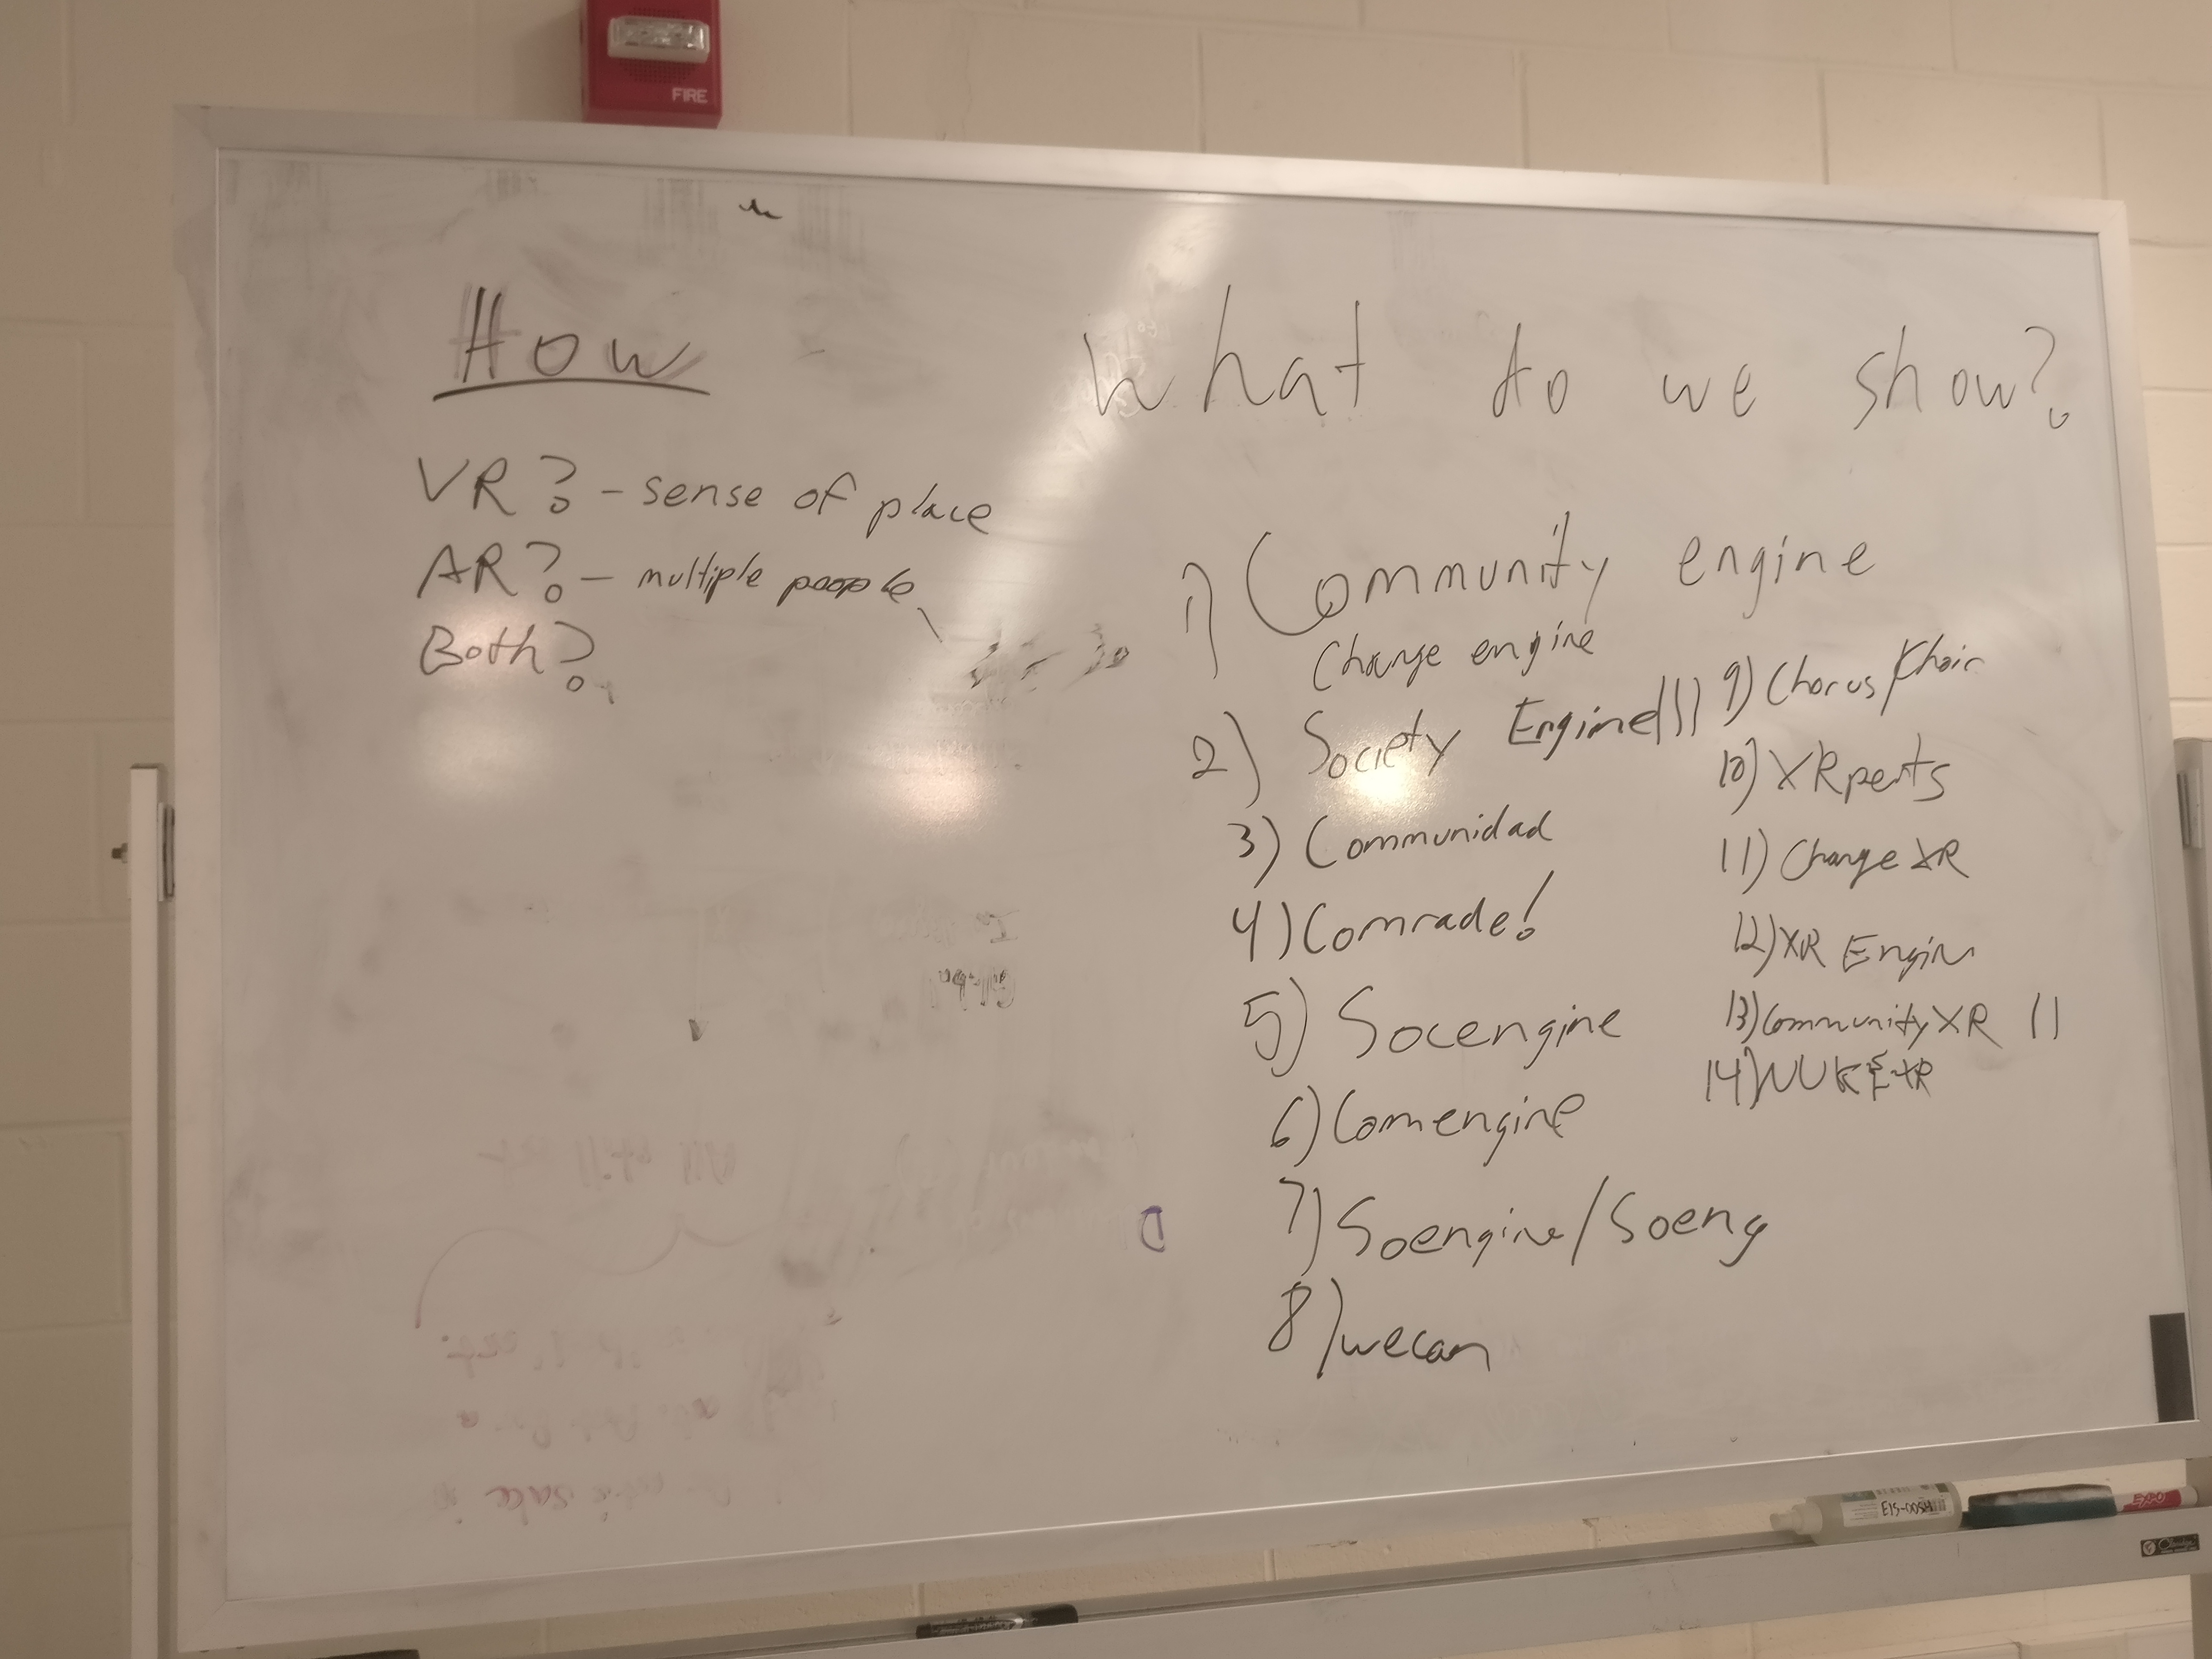 FIRE
How
VR? - sense of place
AR? - multiple people
Both?
What do we show?
1) Community engine
Change engine
2) Society Engine |||
3) Communidad
4) Comrade!
5) Socengine
6) Comengine
7) Soengine/Soeng
8) wecan
9) Chorus/Choir
10) XRperts
11) Change XR
12) XR Engin
13) Community XR ||
14) NUKE XR
EXPO